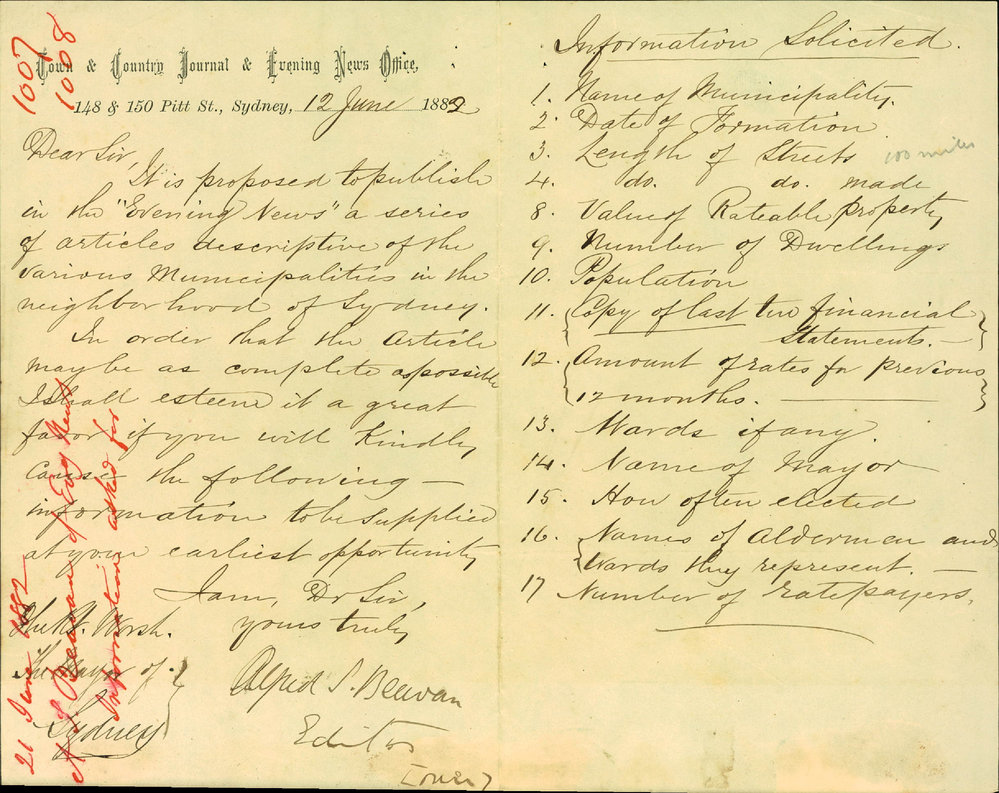 1007
1008
Town & Country Journal & Evening News Office,
148 & 150 Pitt St., Sydney, 12 June 1882
Dear Sir,
It is proposed to publish
in the "Evening News" a series
of articles descriptive of the
various Municipalities in the
neighborhood of Sydney.
In order that the Article
may be as complete as possible
I shall esteem it a great
favor if you will kindly
cause the following —
information to be supplied
at your earliest opportunity
I am, Dr Sir,
yours truly
Alfred J. Beevan
Editor
The Rt. Worsh.
The Mayor of
Sydney
[over]
21 June 1882
A J Beevan of Evg News
Information asked for
Information Solicited.
1. Name of Municipality.
2. Date of Formation
3. Length of Streets 100 miles
4. do. do. made
8. Value of Rateable property
9. Number of Dwellings
10. Population
11. Copy of last two financial
Statements. —
12. Amount of rates for previous
12 months. —
13. Wards if any.
14. Name of Mayor
15. How often elected
16. Names of Aldermen and
Wards they represent. —
17 Number of ratepayers.